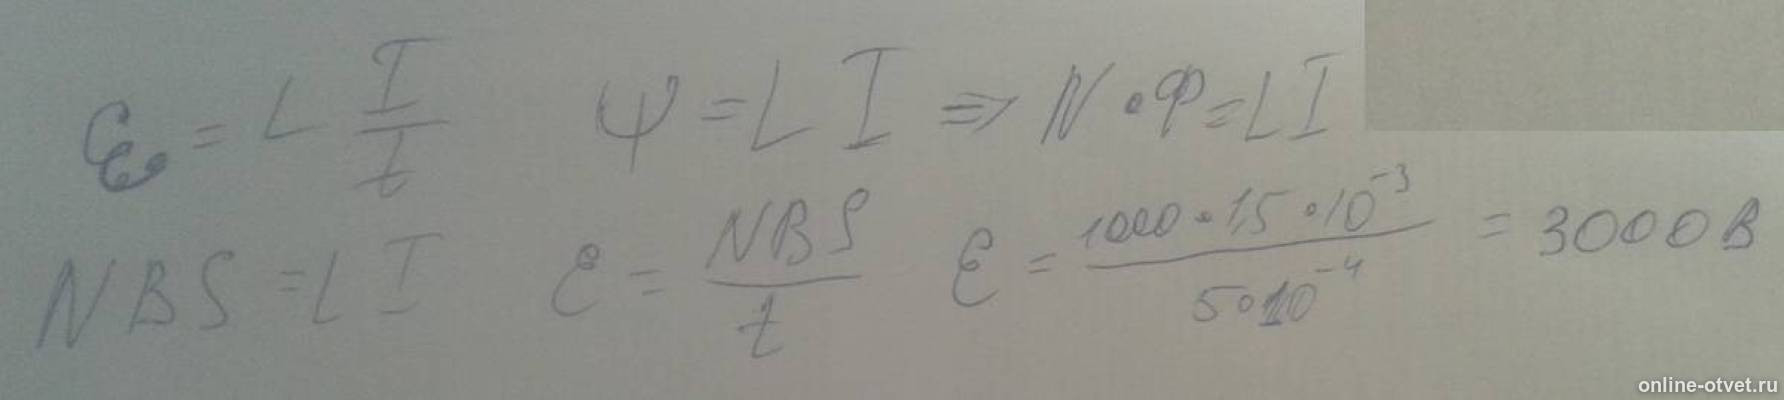 ℰ = L I/t   Ψ = L I ⇒ N · Φ = L I
N B S = L I   ℰ = NBS/t   ℰ = 1000 · 15 · 10⁻³/5 · 10⁻⁴ = 3000 В
online-otvet.ru